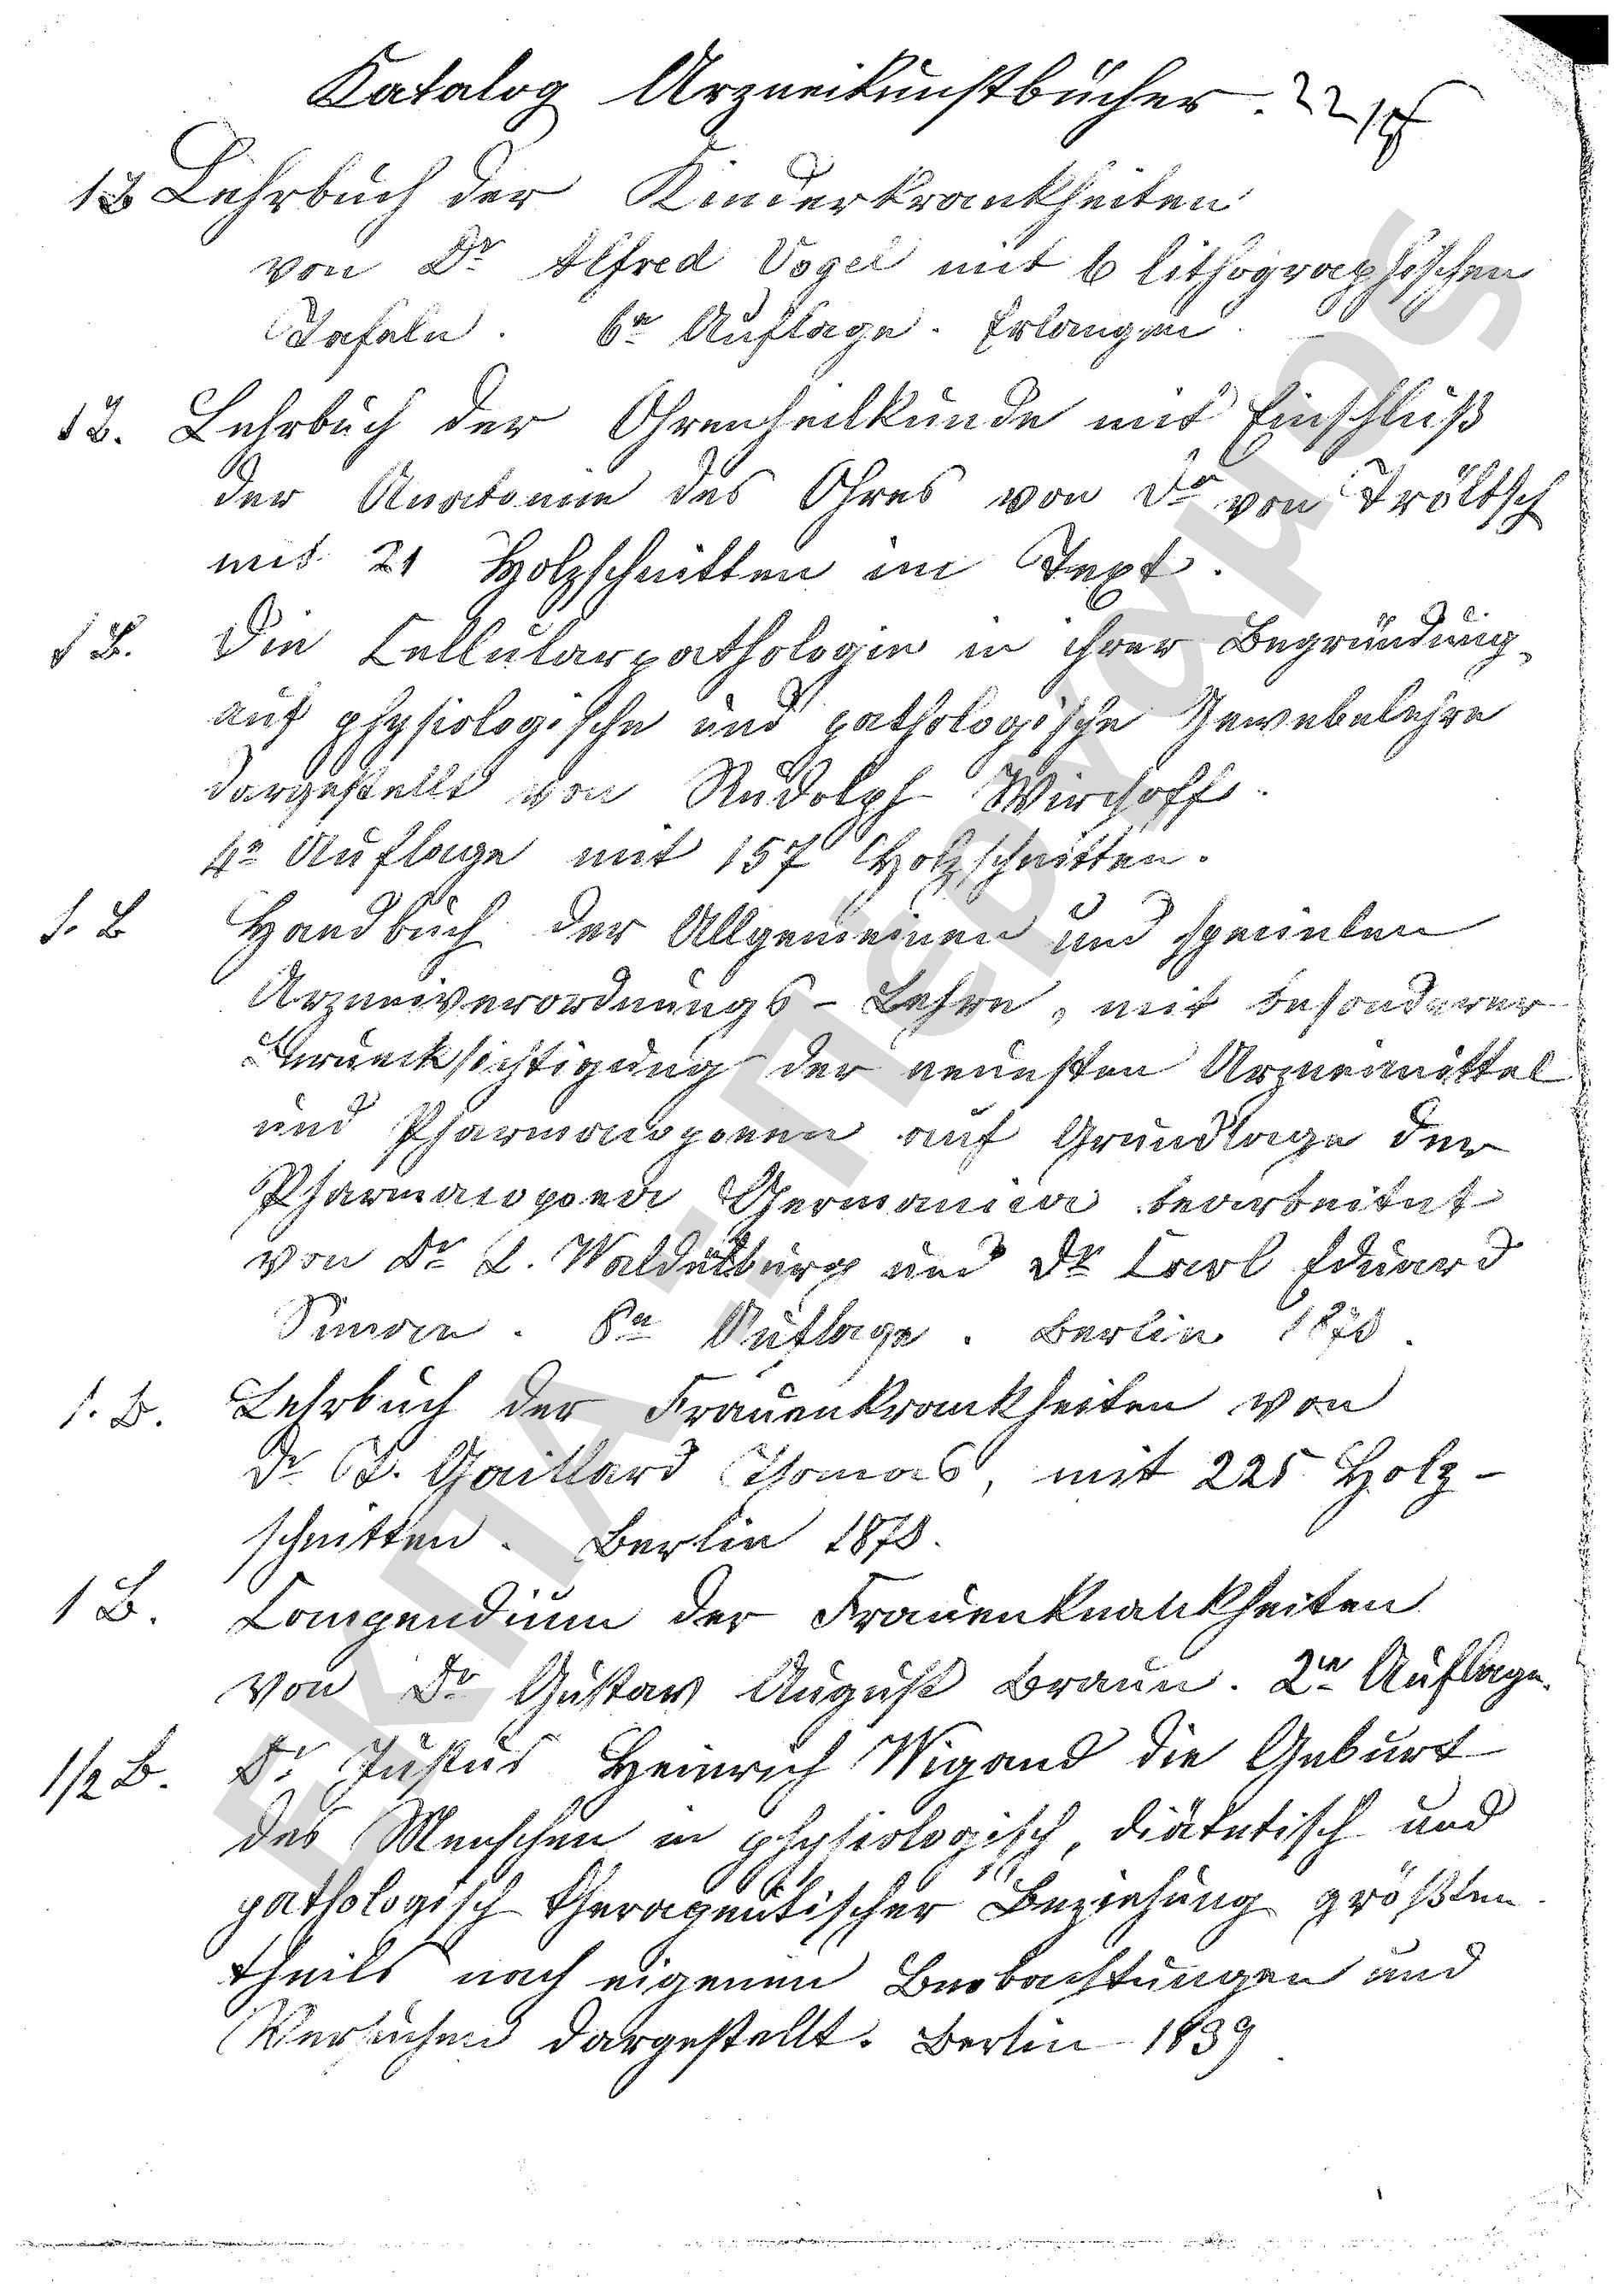 Katalog Arzneikunstbücher. 22
1 B Lehrbuch der Kinderkrankheiten
von Dr Alfred Vogel mit 6 lithographischen
Tafeln. 6te Auflage. Erlangen
1 B. Lehrbuch der Ohrenheilkunde mit Einschluß
der Anatomie des Ohres von Dr von Tröltsch
mit 21 Holzschnitten im Text.
1 B. Die Cellularpathologie in ihrer Begründung
auf physiologische und pathologische Gewebelehre
dargestellt von Rudolph Wirchoff.
4te Auflage mit 157 Holzschnitten.
1. B Handbuch der Allgemeinen und speciellen
Arzneiverordnungs-Lehre, mit besonderer
Berücksichtigung der neuesten Arzneimittel
und Pharmacopoeen auf Grundlage der
Pharmacopoea Germanica bearbeitet
von Dr L. Waldenburg und Dr Carl Eduard
Simon. 8te Auflage. Berlin 1873.
1. B. Lehrbuch der Frauenkrankheiten von
Dr T. Gaillard Thomas, mit 225 Holz-
schnitten. Berlin 1873.
1 B. Compendium der Frauenkrankheiten
von Dr Gustav August Braun. 2te Auflage.
1/2 B. Dr Justus Heinrich Wigand die Geburt
des Menschen in physiologisch, diätetisch und
pathologisch therapeutischer Beziehung größten
theils nach eigenen Beobachtungen und
Versuchen dargestellt. Berlin 1839
ΕΚΠΑ - Περγαμος